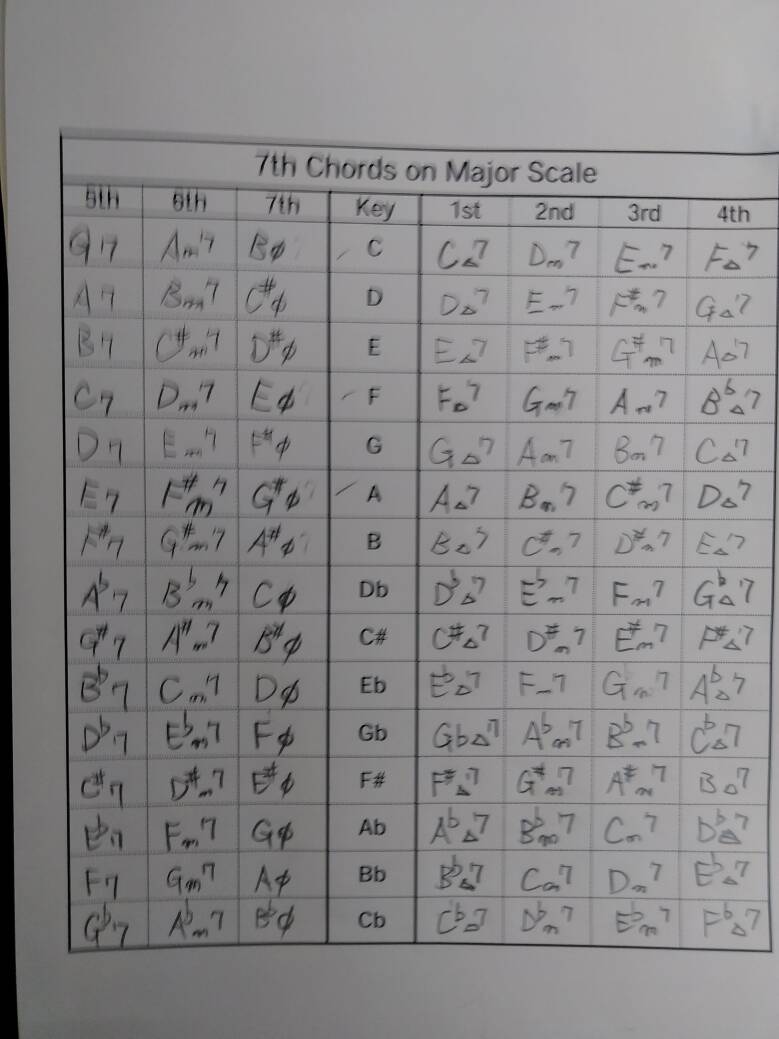 7th Chords on Major Scale
5th 6th 7th Key 1st 2nd 3rd 4th
G7 Am7 Bø C C△7 Dm7 Em7 F△7
A7 Bm7 C#ø D D△7 E-7 F#m7 G△7
B7 C#m7 D#ø E E△7 F#m7 G#m7 A△7
C7 Dm7 Eø F F△7 Gm7 Am7 B♭△7
D7 Em7 F#ø G G△7 Am7 Bm7 C△7
E7 F#m7 G#ø A A△7 Bm7 C#m7 D△7
F#7 G#m7 A#ø B B△7 C#m7 D#m7 E△7
A♭7 B♭m7 Cø Db D♭△7 E♭m7 Fm7 G♭△7
G#7 A#m7 B#ø C# C#△7 D#m7 E#m7 F#△7
B♭7 Cm7 Dø Eb E♭△7 F-7 Gm7 A♭△7
D♭7 E♭m7 Fø Gb Gb△7 A♭m7 B♭m7 C♭△7
C#7 D#m7 E#ø F# F#△7 G#m7 A#m7 B△7
E♭7 Fm7 Gø Ab A♭△7 B♭m7 Cm7 D♭△7
F7 Gm7 Aø Bb B♭△7 Cm7 Dm7 E♭△7
G♭7 A♭m7 B♭ø Cb C♭△7 D♭m7 E♭m7 F♭△7